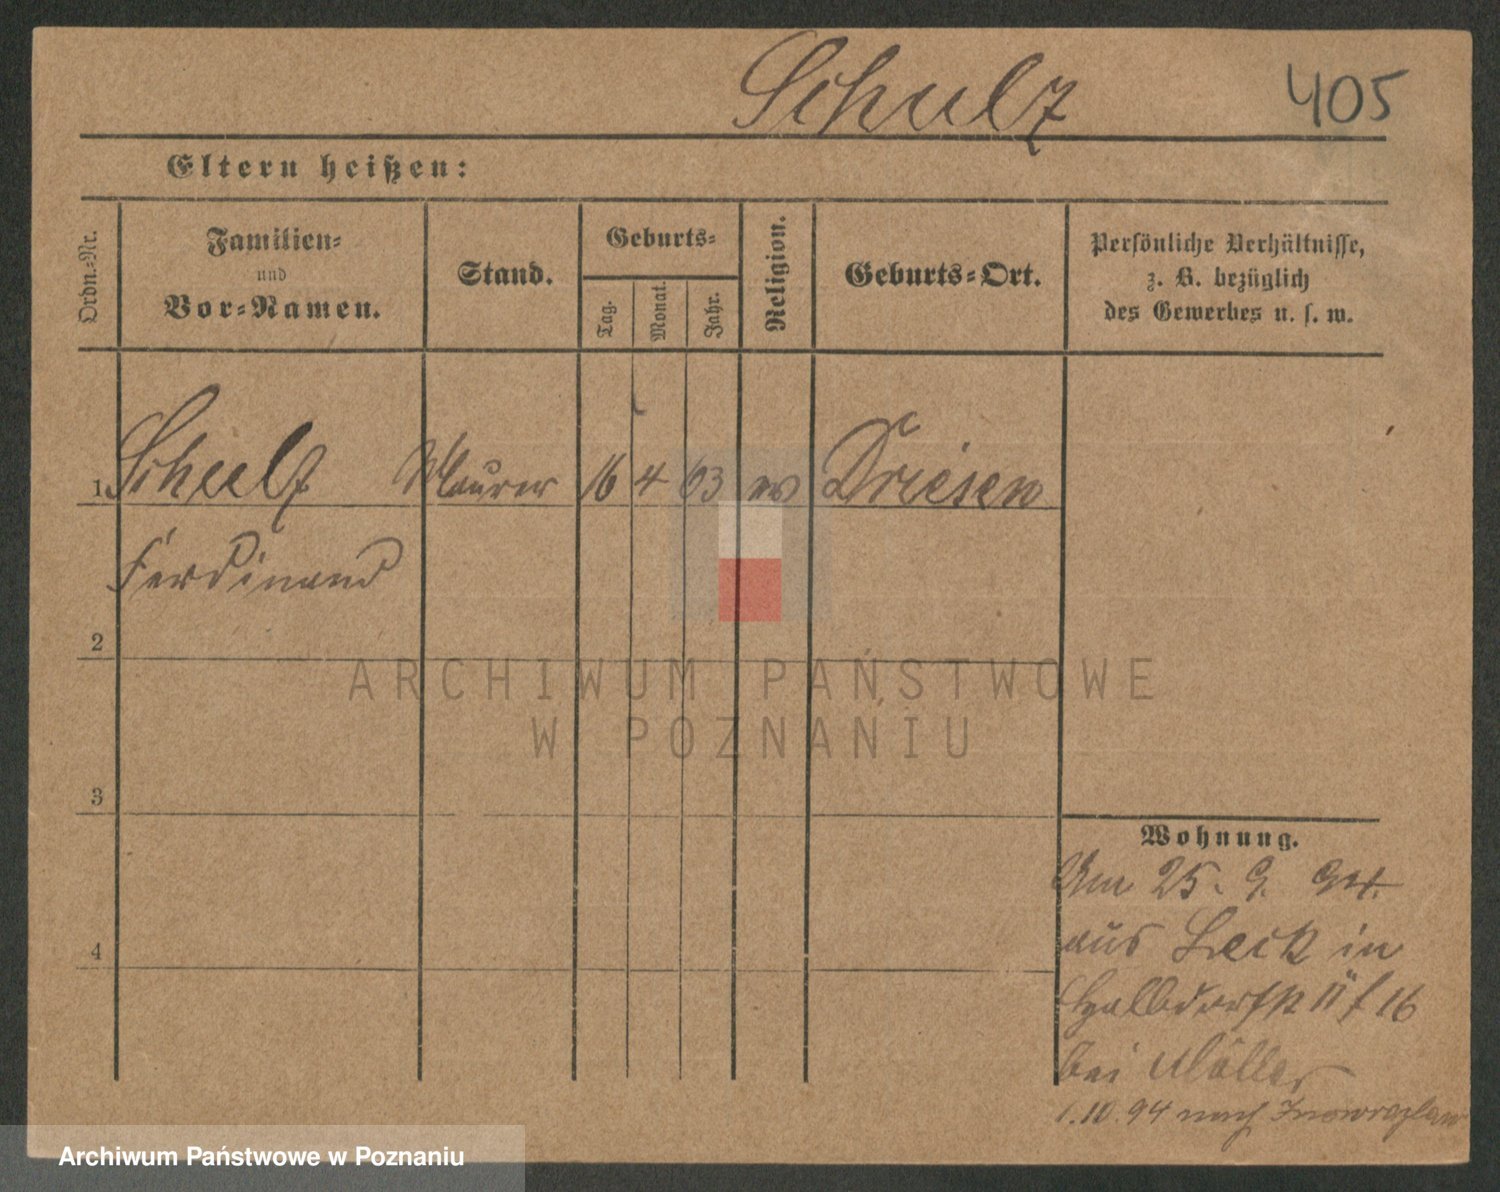 Schulz 405
Eltern heißen:
Ordn.-Nr.
Familien-
und
Vor-Namen.
Stand.
Geburts-
Tag.
Monat.
Jahr.
Religion.
Geburts-Ort.
Persönliche Verhältnisse,
z. B. bezüglich
des Gewerbes u. s. w.
1 Schulz Maurer 16 4 63 ev Driesen
Ferdinand
2
3
4
Wohnung.
Am 25. 9. 94.
aus Leck in
Halbdorfstr 16
bei Müller
1.10.94 nach Inowrazlaw
ARCHIWUM PAŃSTWOWE
W POZNANIU
Archiwum Państwowe w Poznaniu